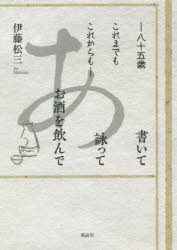 ―八十五歳
これまでも
これからも―
あ
書いて
詠って
お酒を飲んで
伊藤松三